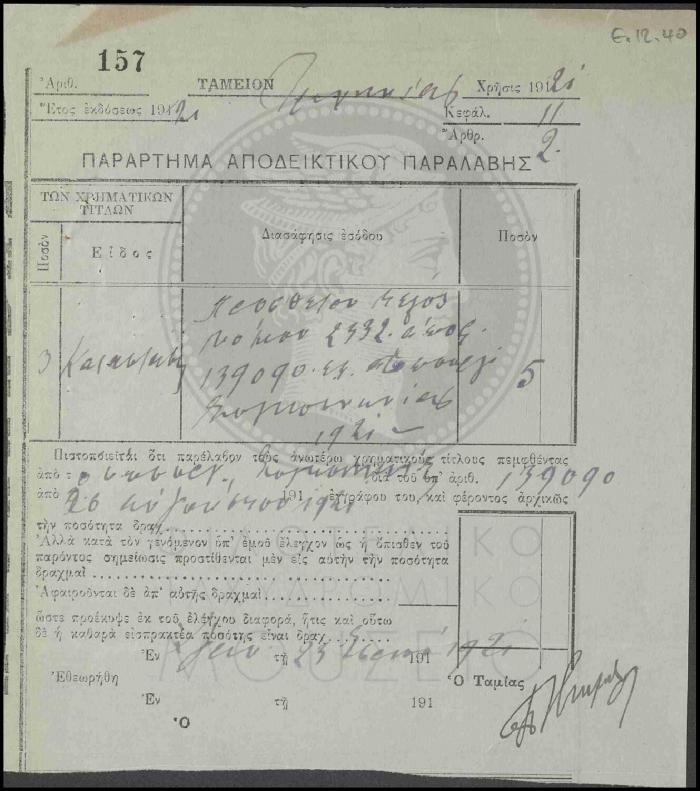 Ε.12.40
157
Ἀριθ. ΤΑΜΕΙΟΝ Χρῆσις 1921
Ἔτος ἐκδόσεως 1921 Κεφάλ. 11
Ἄρθρ. 2.
ΠΑΡΑΡΤΗΜΑ ΑΠΟΔΕΙΚΤΙΚΟΥ ΠΑΡΑΛΑΒΗΣ
ΤΩΝ ΧΡΗΜΑΤΙΚΩΝ ΤΙΤΛΩΝ
Ποσὸν Εἶδος Διασάφησις ἐσόδου Ποσὸν
Πρόσθετον τέλος
νόμου 2532
3 139090 5
Συγκοινωνίας
1921
Πιστοποιεῖται ὅτι παρέλαβον τοὺς ἀνωτέρω χρηματικοὺς τίτλους πεμφθέντας
ἀπὸ τ Συγκοινωνίας διὰ τοῦ ὑπ' ἀριθ. 139090
ἀπὸ 26 Αὐγούστου 1921 191 ἐγγράφου του, καὶ φέροντος ἀρχικῶς
τὴν ποσότητα δραχ.
Ἀλλὰ κατὰ τὸν γενόμενον ὑπ' ἐμοῦ ἔλεγχον ὡς ἡ ὄπισθεν τοῦ
παρόντος σημείωσις προστίθενται μὲν εἰς αὐτὴν τὴν ποσότητα
δραχμαὶ
Ἀφαιροῦνται δὲ ἀπ' αὐτῆς δραχμαὶ
ὥστε προέκυψε ἐκ τοῦ ἐλέγχου διαφορά, ἥτις καὶ οὕτω
δὲ ἡ καθαρὰ εἰσπρακτέα ποσότης εἶναι δραχ.
Ἐν τῇ 25 191 1921
Ἐθεωρήθη Ὁ Ταμίας
Ἐν τῇ 191
Ὁ